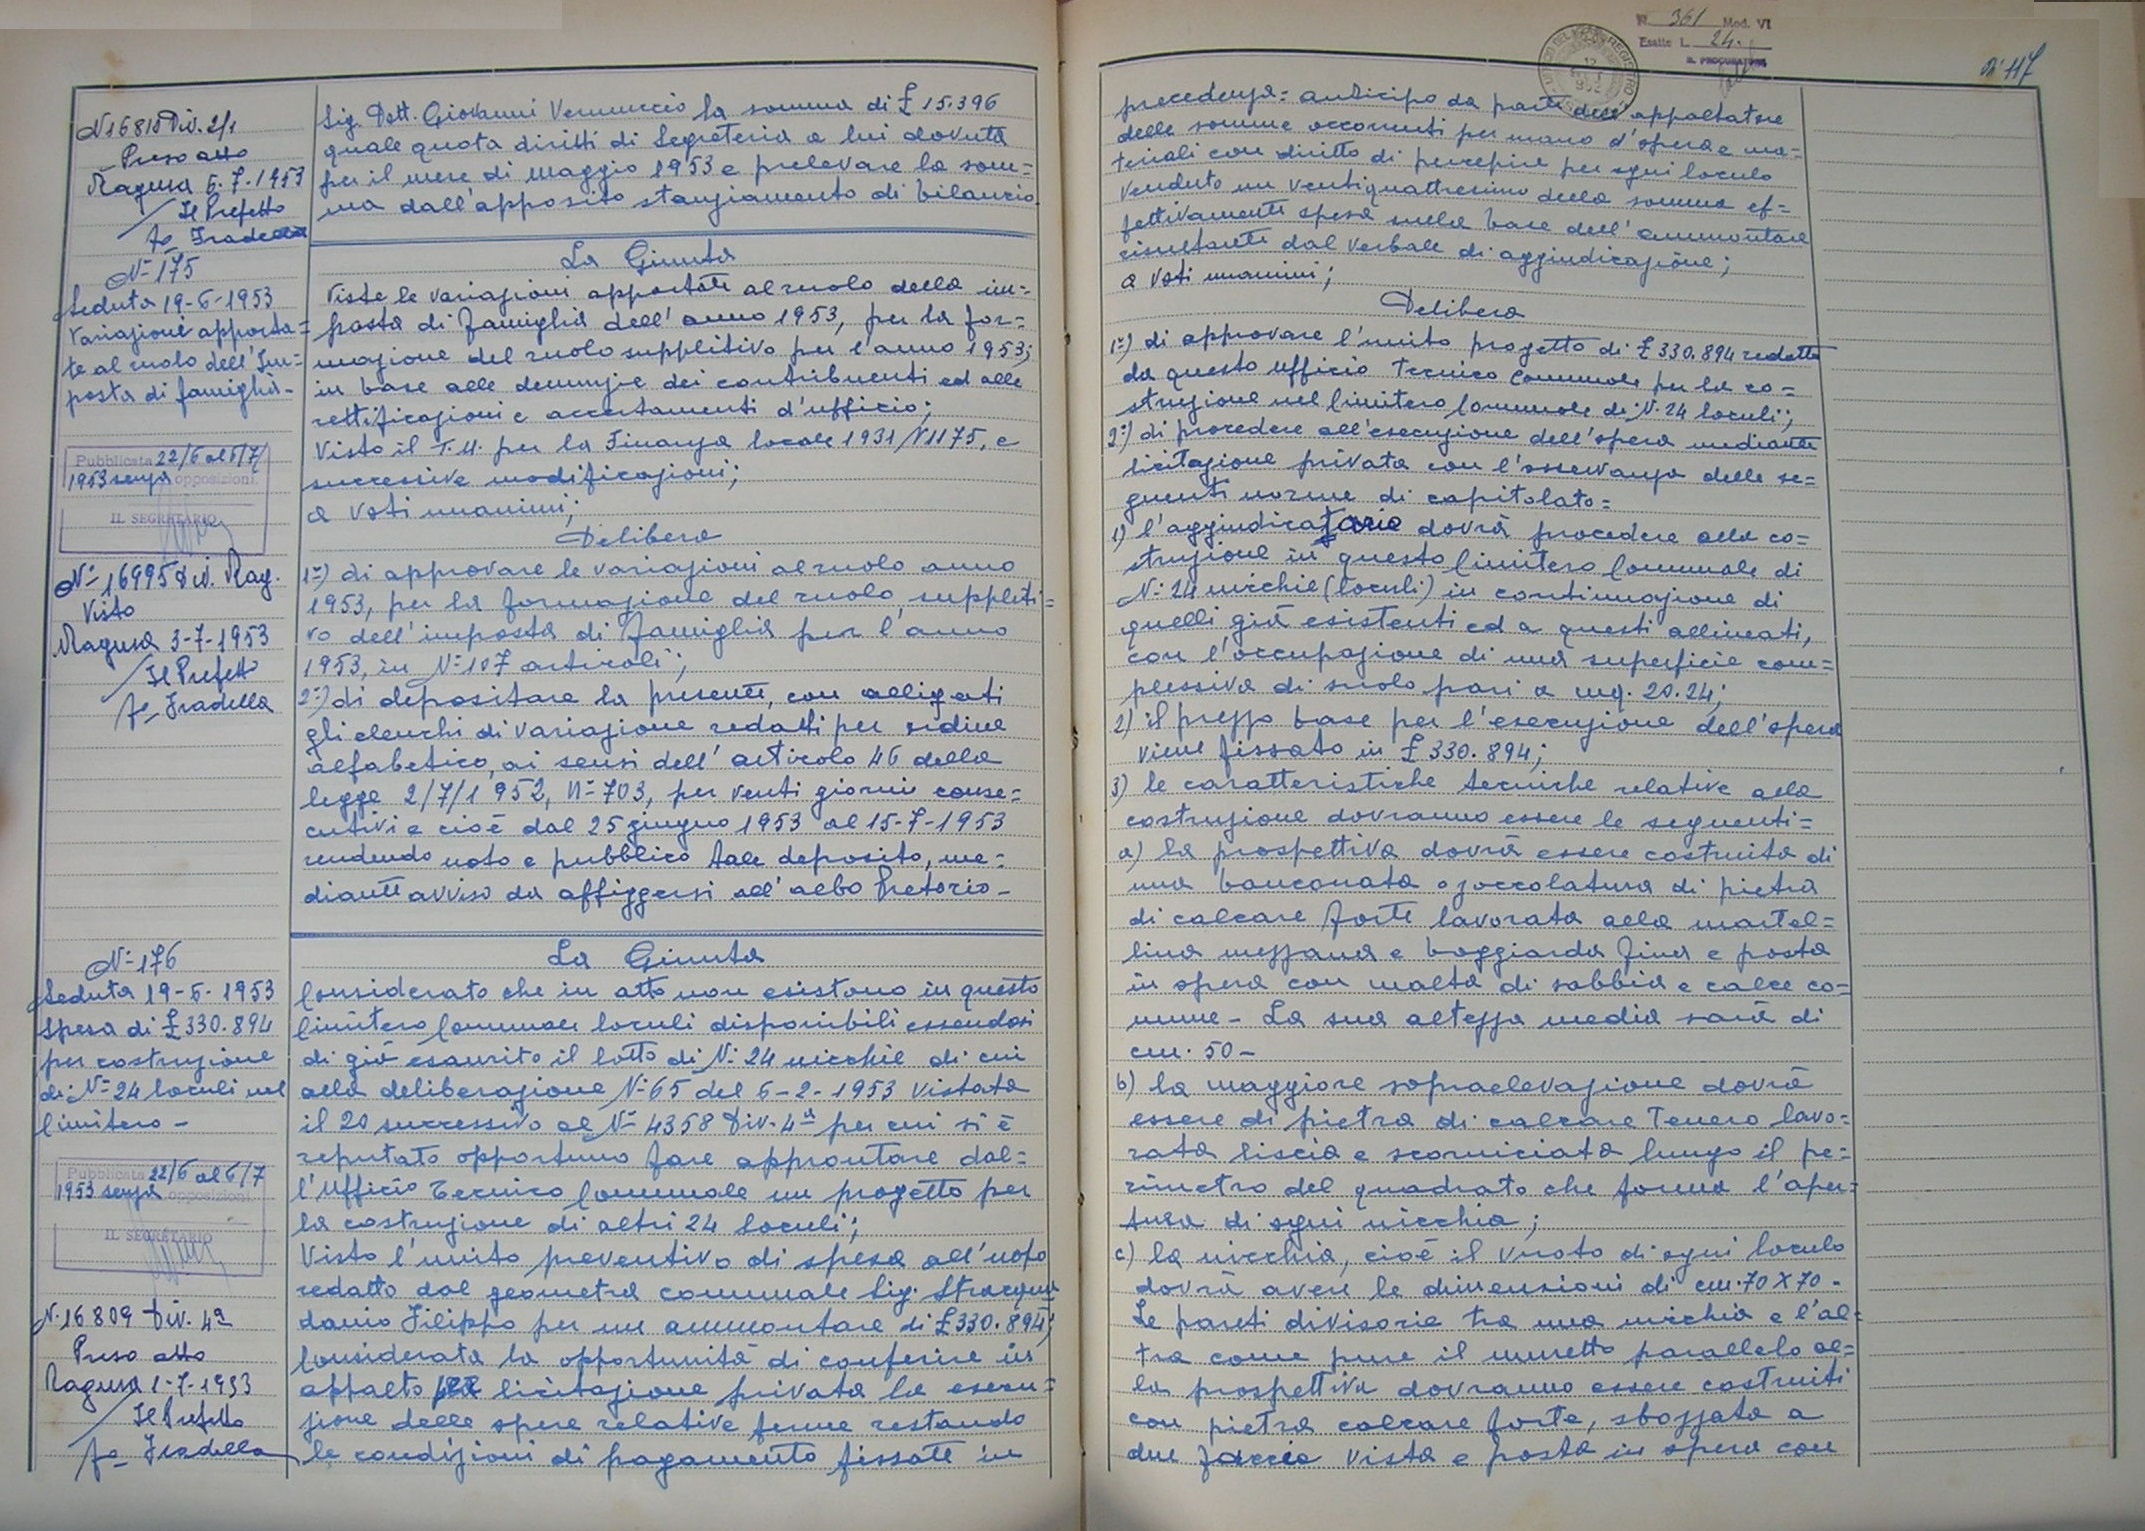 N 16810 Div. 2/1
Preso atto
Ragusa 6.7.1953
Il Prefetto
fo Iradella
Sig. Dott. Giovanni Vermuccio la somma di £ 15.396
quale quota diritti di Segreteria a lui dovuta
per il mese di Maggio 1953 e prelevare la som=
ma dall'apposito stanziamento di bilancio
N° 175
Seduta 19-6-1953
Variazioni apporta=
te al ruolo dell'Im=
posta di famiglia-
Pubblicata 22/6 al 6/7/
1953 senza opposizioni.
IL SEGRETARIO
N° 16995 Div. Rag.
Visto
Ragusa 3-7-1953
Il Prefetto
fo Iradella
La Giunta
Viste le variazioni apportate al ruolo della im=
posta di famiglia dell'anno 1953, per la for=
mazione del ruolo supplitivo per l'anno 1953;
in base alle denunzie dei contribuenti ed alle
rettificazioni e accertamenti d'ufficio;
Visto il T.U. per la Finanza locale 1931 N 1175, e
successive modificazioni;
a voti unanimi;
Delibera
1°) di approvare le variazioni al ruolo anno
1953, per la formazione del ruolo suppleti=
vo dell'imposta di famiglia per l'anno
1953, in N° 107 articoli;
2°) di depositare la presente, con alligati
gli elenchi di variazione redatti per ordine
alfabetico, ai sensi dell'articolo 46 della
legge 2/7/1952, N° 703, per venti giorni conse=
cutivi e cioè dal 25 giugno 1953 al 15-7-1953
rendendo noto e pubblico tale deposito, me=
diante avviso da affiggersi all'albo Pretorio-
N° 176
Seduta 19-6-1953
Spesa di £ 330.894
per costruzione
di N° 24 loculi nel
Cimitero-
Pubblicata 22/6 al 6/7
1953 senza opposizioni.
IL SEGRETARIO
N. 16809 Div. 4a
Preso atto
Ragusa 1-7-1953
Il Prefetto
fo Iradella
La Giunta
Considerato che in atto non esistono in questo
Cimitero Comunale loculi disponibili essendosi
di già esaurito il lotto di N. 24 nicchie di cui
alla deliberazione N. 65 del 6-2-1953 vistata
il 20 successivo al N° 4358 Div. 4a per cui si è
reputato opportuno fare approntare dal=
l'Ufficio Tecnico Comunale un progetto per
la costruzione di altri 24 loculi;
Visto l'unito preventivo di spesa all'uopo
redatto dal geometra comunale Sig. Stracqua=
danio Filippo per un ammontare di £ 330.894;
Considerata la opportunità di conferire in
appalto per licitazione privata la esecu=
zione delle opere relative ferme restando
le condizioni di pagamento fissate in
N. 361 Mod. VI
Esatte L. 24.-
IL PROCURATORE
N° 117
precedenza: anticipo da parte dell'appaltatore
delle somme occorrenti per mano d'opera e ma=
teriali con diritto di percepire per ogni loculo
venduto un ventiquattresimo della somma ef=
fettivamente spesa sulla base dell'ammontare
risultante dal verbale di aggiudicazione;
a voti unanimi;
Delibera
1°) di approvare l'unito progetto di £ 330.894 redatto
da questo Ufficio Tecnico Comunale per la co=
struzione nel Cimitero Comunale di N. 24 loculi;
2°) di procedere all'esecuzione dell'opera mediante
licitazione privata con l'osservanza delle se=
guenti norme di capitolato=
1) l'aggiudicatario dovrà procedere alla co=
struzione in questo Cimitero Comunale di
N° 24 nicchie (loculi) in continuazione di
quelli già esistenti ed a questi allineati,
con l'occupazione di una superficie com=
plessiva di suolo pari a mq. 20.24;
2) il prezzo base per l'esecuzione dell'opera
viene fissato in £ 330.894;
3) le caratteristiche tecniche relative alla
costruzione dovranno essere le seguenti=
a) la prospettiva dovrà essere costruita di
una banconata o zoccolatura di pietra
di calcare forte lavorata alla martel=
lina mezzana e boggiarda fina e posta
in opera con malta di sabbia e calce co=
mune- La sua altezza media sarà di
cm. 50-
b) la maggiore sopraelevazione dovrà
essere di pietra di calcare Tenero lavo=
rata liscia e scorniciata lungo il pe=
rimetro del quadrato che forma l'aper=
tura di ogni nicchia;
c) la nicchia, cioè il vuoto di ogni loculo
dovrà avere le dimensioni di cm. 70 X 70-
Le pareti divisorie tra una nicchia e l'al=
tra come pure il muretto parallelo al=
la prospettiva dovranno essere costruiti
con pietra calcare forte, sbozzata a
due faccie vista e posta in opera con